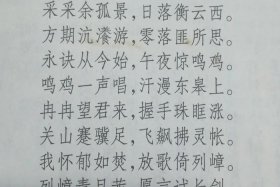 采采余孤景，日落衡云西。
方期沆瀁游，零落匪所思。
永诀从今始，午夜惊鸣鸡。
鸣鸡一声唱，汗漫东皋上。
冉冉望君来，握手珠眶涨。
关山蹇骥足，飞飙拂灵帐。
我怀郁如焚，放歌倚列嶂。
列嶂青且茜，愿言试长剑